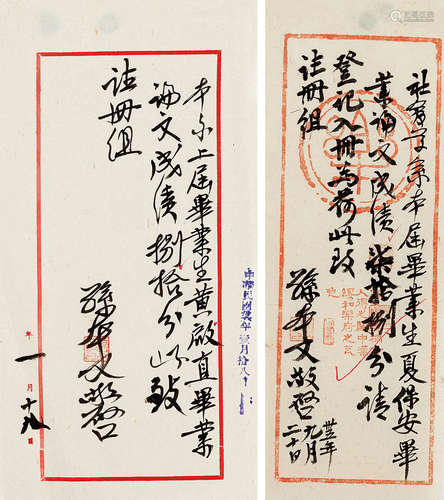 本系上屆畢業生黃啟直畢業
論文成績捌拾分此致
註冊組
孫本文敬啓
年一月十九日
社會學系本屆畢業生夏保安畢
業論文成績柒拾捌分請
登記入冊為荷此致
註冊組
孫本文敬啓
卅五年九月二十日